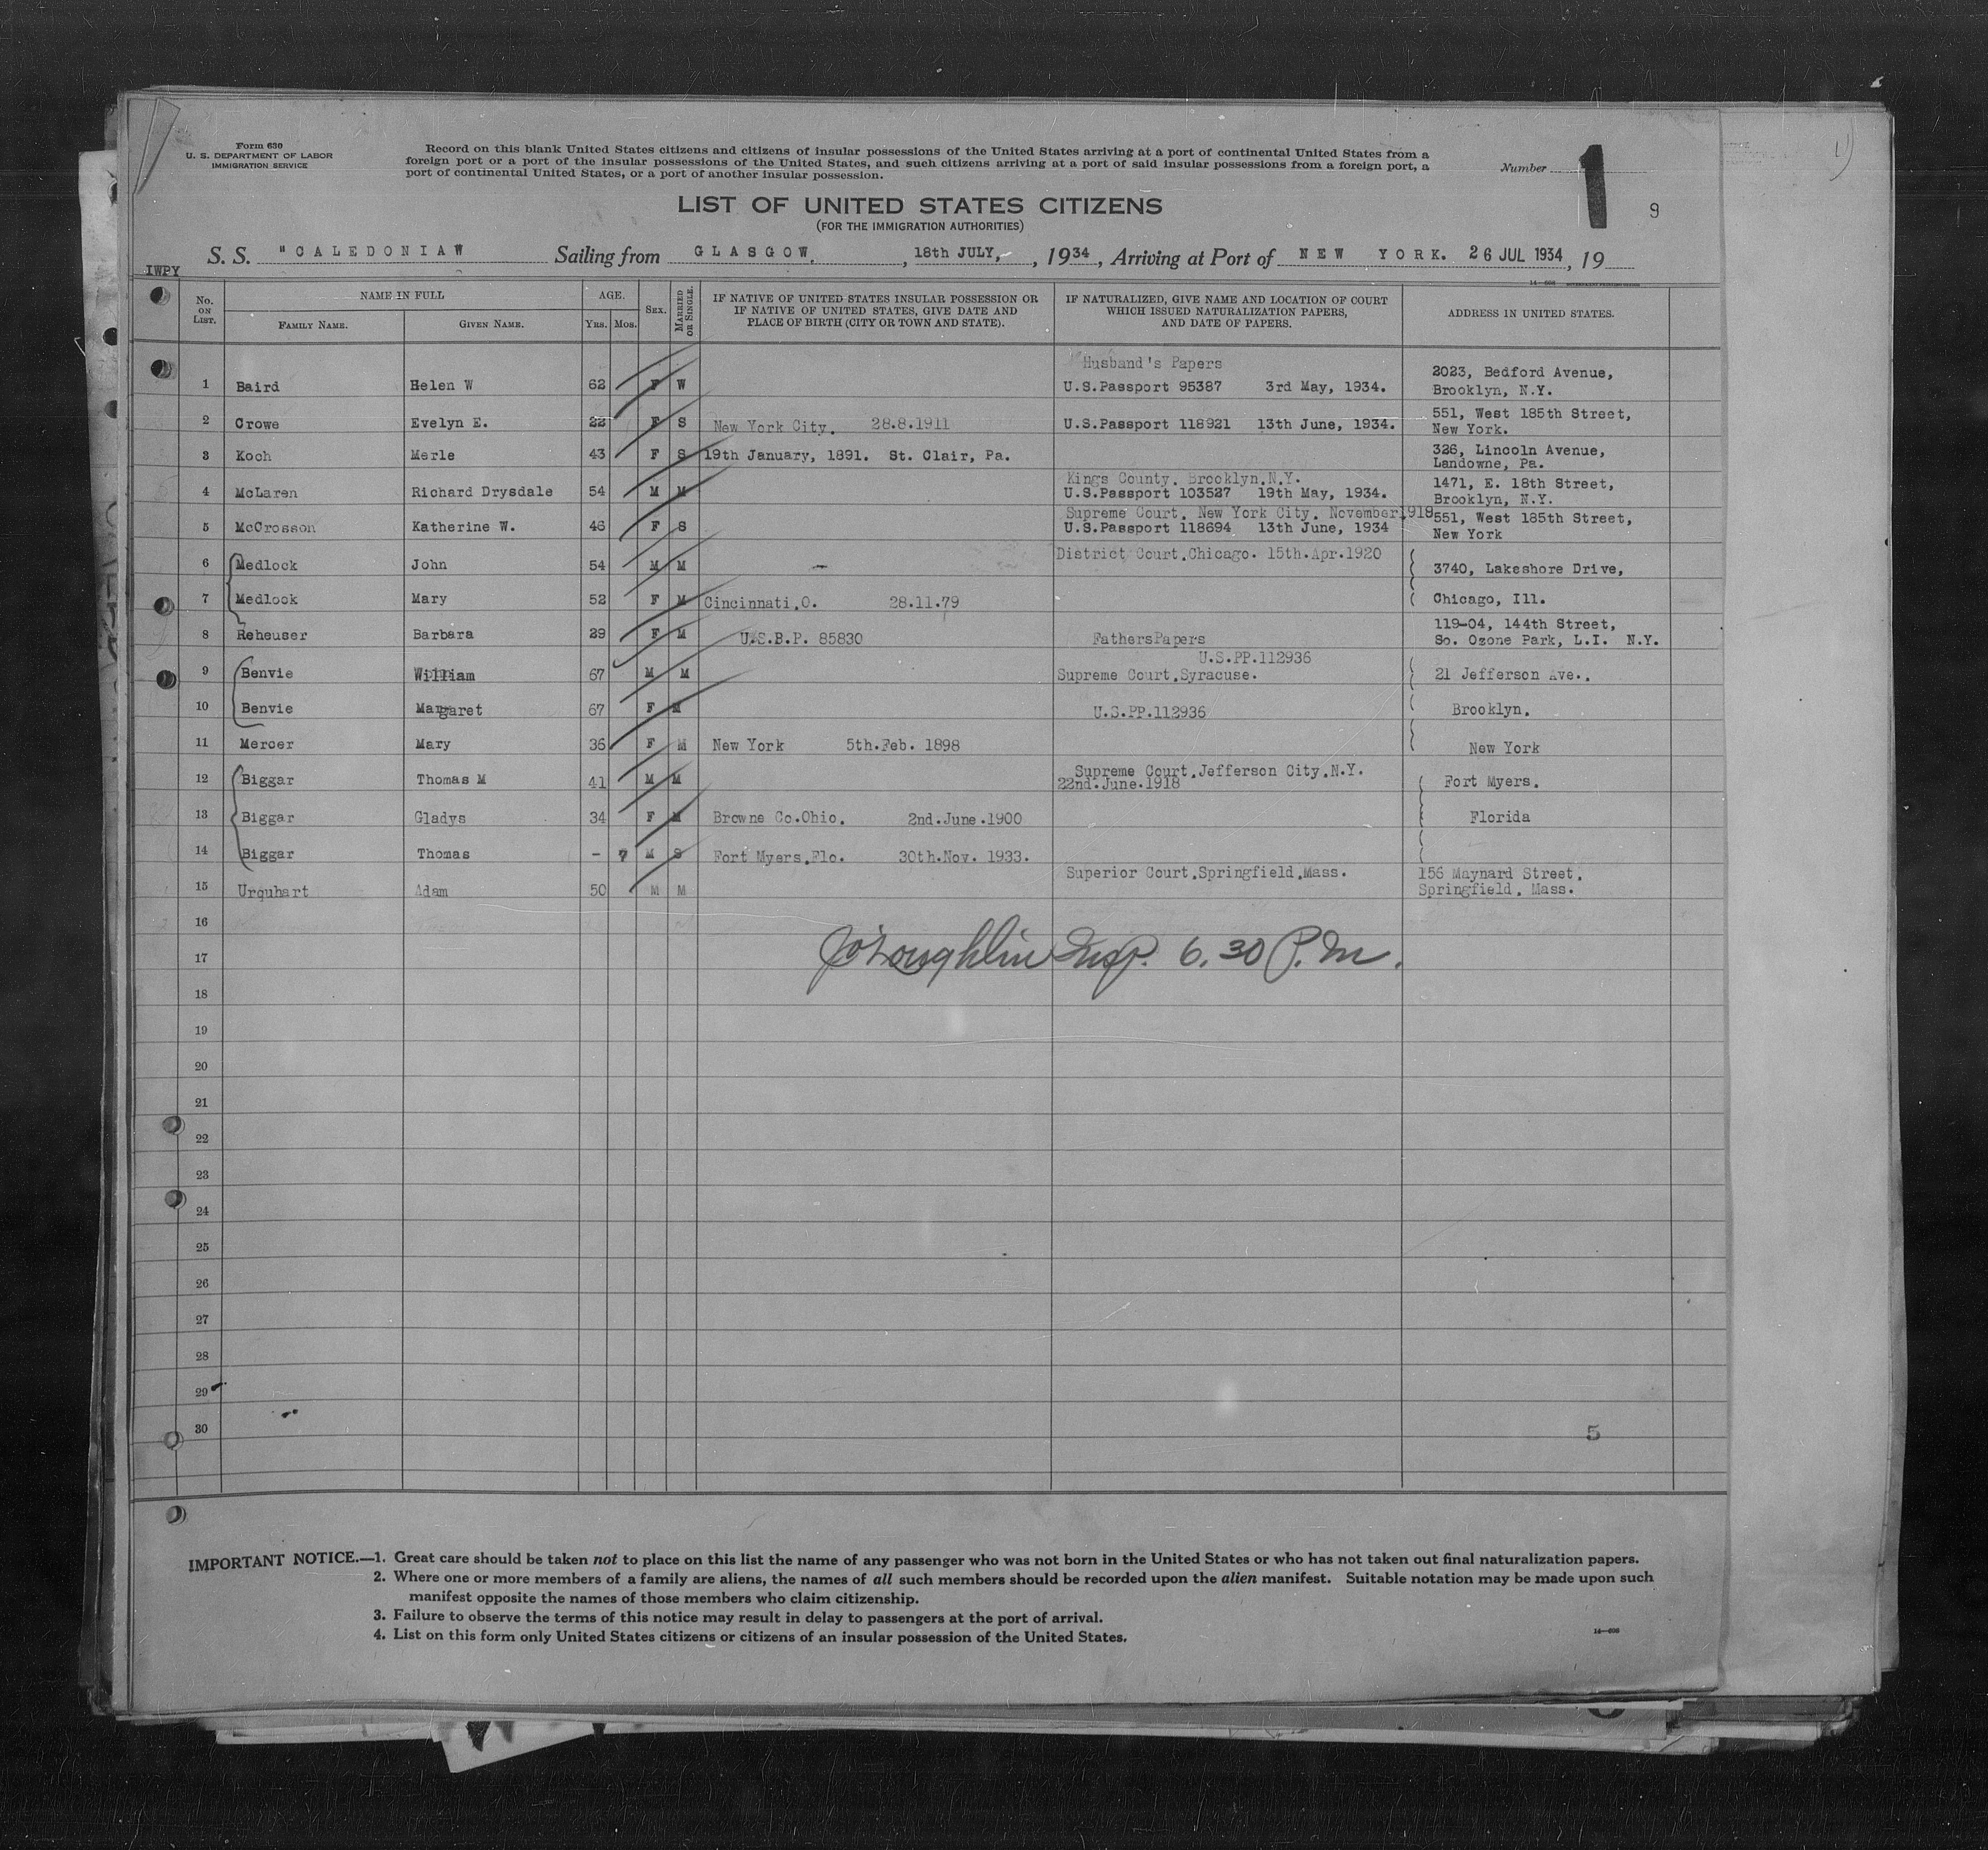 Form 630
U. S. DEPARTMENT OF LABOR
IMMIGRATION SERVICE
Record on this blank United States citizens and citizens of insular possessions of the United States arriving at a port of continental United States from a
foreign port or a port of the insular possessions of the United States, and such citizens arriving at a port of said insular possessions from a foreign port, a
port of continental United States, or a port of another insular possession.
Number 1
9
LIST OF UNITED STATES CITIZENS
(FOR THE IMMIGRATION AUTHORITIES)
S. S. "CALEDONIAW Sailing from GLASGOW, 18th JULY, 1934, Arriving at Port of NEW YORK. 26 JUL 1934, 19
IWPY
No. ON LIST. NAME IN FULL FAMILY NAME. GIVEN NAME. AGE. YRS. MOS. SEX. MARRIED OR SINGLE. IF NATIVE OF UNITED STATES INSULAR POSSESSION OR IF NATIVE OF UNITED STATES, GIVE DATE AND PLACE OF BIRTH (CITY OR TOWN AND STATE). IF NATURALIZED, GIVE NAME AND LOCATION OF COURT WHICH ISSUED NATURALIZATION PAPERS, AND DATE OF PAPERS. ADDRESS IN UNITED STATES.
Husband's Papers
1 Baird Helen W 62 F W U.S.Passport 95387 3rd May, 1934. 2023, Bedford Avenue, Brooklyn, N.Y.
2 Crowe Evelyn E. 22 F S New York City. 28.8.1911 U.S.Passport 118921 13th June, 1934. 551, West 185th Street, New York.
3 Koch Merle 43 F S 19th January, 1891. St. Clair, Pa. 326, Lincoln Avenue, Landowne, Pa.
Kings County. Brooklyn.N.Y.
4 McLaren Richard Drysdale 54 M M U.S.Passport 103527 19th May, 1934. 1471, E. 18th Street, Brooklyn, N.Y.
Supreme Court. New York City. November.1918
5 McCrosson Katherine W. 46 F S U.S.Passport 118694 13th June, 1934 551, West 185th Street, New York
6 Medlock John 54 M M District Court.Chicago. 15th.Apr.1920 3740, Lakeshore Drive,
7 Medlock Mary 52 F M Cincinnati.O. 28.11.79 Chicago, Ill.
8 Reheuser Barbara 29 F M U.S.B.P. 85830 FathersPapers 119-04, 144th Street, So. Ozone Park, L.I. N.Y.
U.S.PP.112936
9 Benvie William 67 M M Supreme Court.Syracuse. 21 Jefferson Ave..
10 Benvie Margaret 67 F M U.S.PP.112936 Brooklyn.
11 Mercer Mary 36 F M New York 5th.Feb. 1898 New York
12 Biggar Thomas M 41 M M Supreme Court.Jefferson City.N.Y. 22nd.June.1918 Fort Myers.
13 Biggar Gladys 34 F M Browne Co.Ohio. 2nd.June.1900 Florida
14 Biggar Thomas - 7 M S Fort Myers.Flo. 30th.Nov. 1933.
15 Urquhart Adam 50 M M Superior Court.Springfield.Mass. 156 Maynard Street. Springfield. Mass.
16
17 O'Loughlin Insp. 6.30 P.M.
18
19
20
21
22
23
24
25
26
27
28
29
30
5
IMPORTANT NOTICE.—1. Great care should be taken not to place on this list the name of any passenger who was not born in the United States or who has not taken out final naturalization papers.
2. Where one or more members of a family are aliens, the names of all such members should be recorded upon the alien manifest. Suitable notation may be made upon such
manifest opposite the names of those members who claim citizenship.
3. Failure to observe the terms of this notice may result in delay to passengers at the port of arrival.
4. List on this form only United States citizens or citizens of an insular possession of the United States.